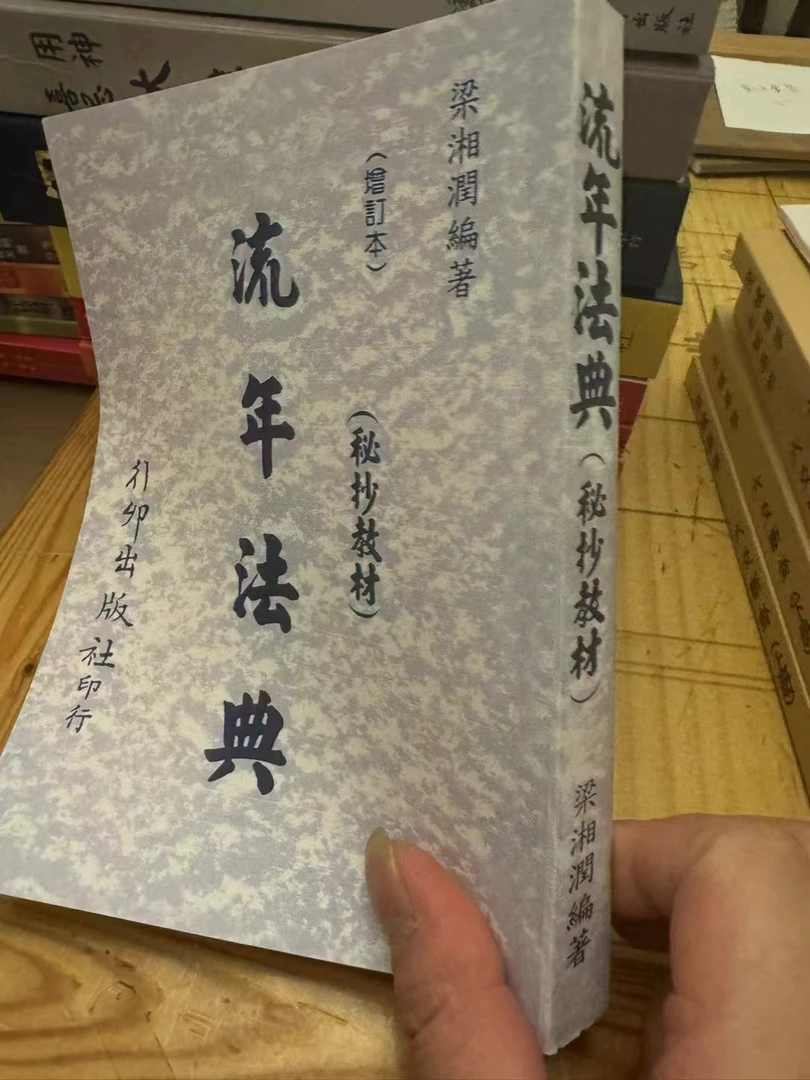 梁湘潤編著
（增訂本）
（秘抄教材）
流年法典
行卯出版社印行
流年法典（秘抄教材）
梁湘潤編著
用神
喜忌大
出版社